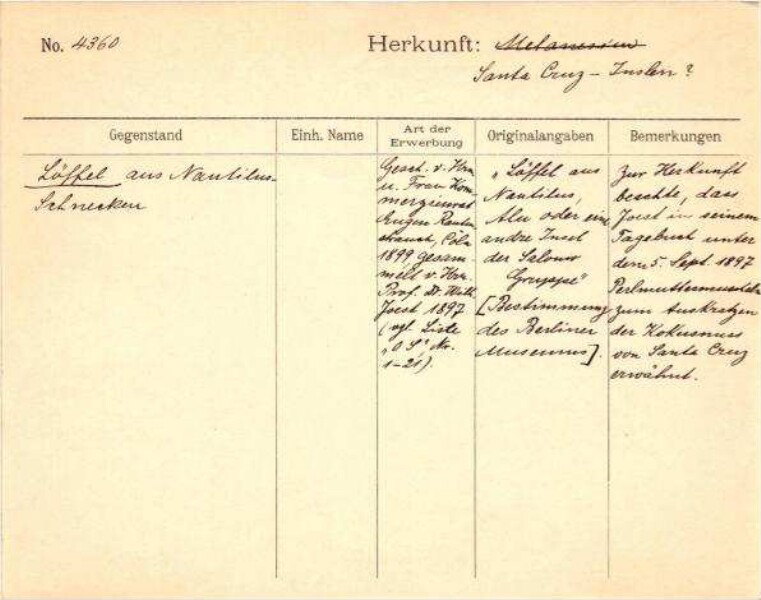 No. 4360
Herkunft: Melanesien
Santa Cruz-Inseln?
Gegenstand
Einh. Name
Art der Erwerbung
Originalangaben
Bemerkungen
Löffel aus Nautilus-
Schnecken
Gesch. v. Hrn.
u. Frau Kom-
merzienrat
Eugen Rauten-
strauch, Cöln
1899, gesam-
melt v. Hrn.
Prof. Dr. Wilh.
Joest 1897
(vgl. Liste
"O S" Nr.
1-21).
"Löffel aus
Nautilus,
Alu oder eine
andre Insel
der Salomo
Gruppe"
[Bestimmung
des Berliner
Museums].
Zur Herkunft
beachte, dass
Joest in seinem
Tagebuch unter
dem 5. Sept. 1897
Perlmuttermuscheln
zum Auskratzen
der Kokusnuss
von Santa Cruz
erwähnt.